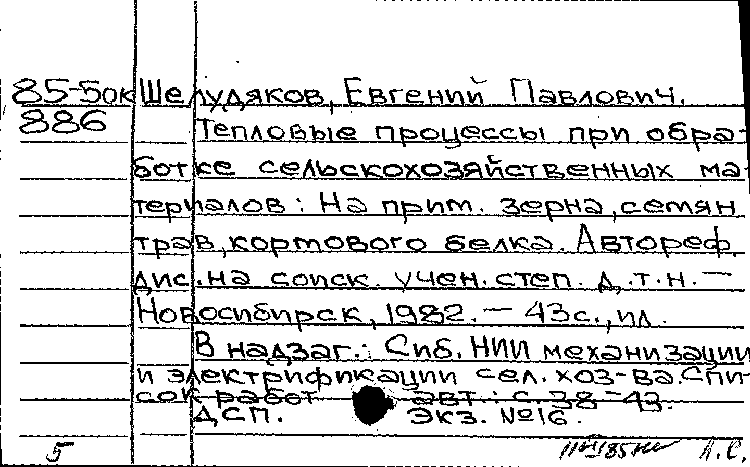 85-5ок Шелудяков, Евгений Павлович.
886 Тепловые процессы при обра-
ботке сельскохозяйственных ма-
териалов: На прим. зерна, семян
трав, кормового белка. Автореф.
дис. на соиск. учен. степ. д.т.н. —
Новосибирск, 1982. — 43с., ил.
В надзаг.: Сиб. НИИ механизации
и электрификации сел. хоз-ва. Спи-
сок работ авт.: с. 38-43.
ДСП. Экз. №16.
5 Л.С.